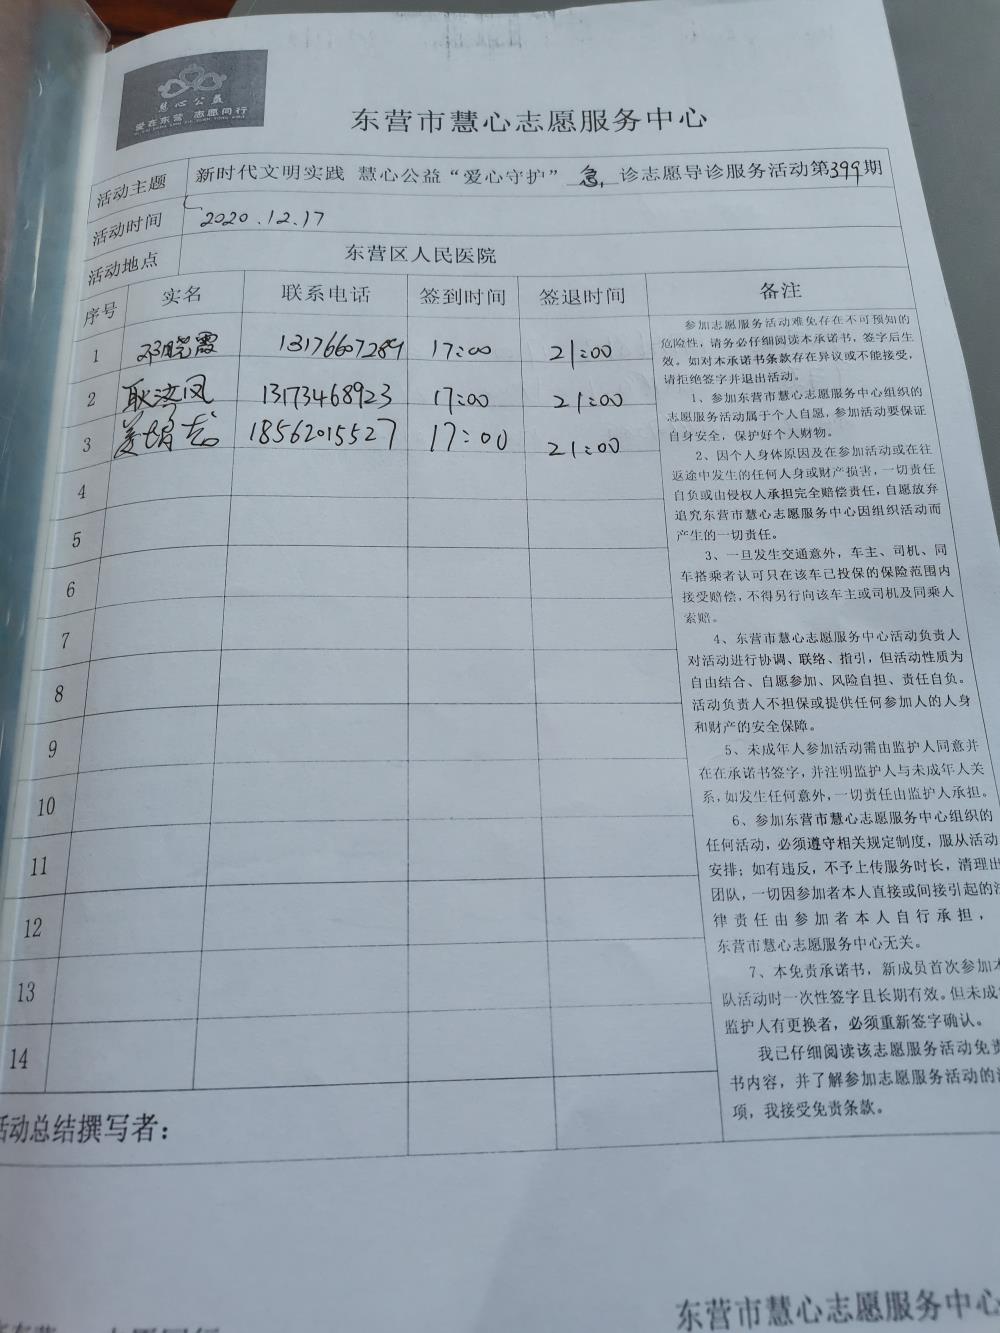 慧心公益
爱在东营 志愿同行
东营市慧心志愿服务中心
活动主题 新时代文明实践 慧心公益“爱心守护” 急 诊志愿导诊服务活动第399期
活动时间 2020.12.17
活动地点 东营区人民医院
序号 实名 联系电话 签到时间 签退时间 备注
1 邓晓霞 13176607289 17:00 21:00
2 耿 凤 13173468923 17:00 21:00
3 姜 志 18562015527 17:00 21:00
4
5
6
7
8
9
10
11
12
13
14
参加志愿服务活动难免存在不可预知的
危险性，请务必仔细阅读本承诺书，签字后生
效。如对本承诺书条款存在异议或不能接受，
请拒绝签字并退出活动。
1、参加东营市慧心志愿服务中心组织的
志愿服务活动属于个人自愿，参加活动要保证
自身安全，保护好个人财物。
2、因个人身体原因及在参加活动或在往
返途中发生的任何人身或财产损害，一切责任
自负或由侵权人承担完全赔偿责任，自愿放弃
追究东营市慧心志愿服务中心因组织活动而
产生的一切责任。
3、一旦发生交通意外，车主、司机、同
车搭乘者认可只在该车已投保的保险范围内
接受赔偿，不得另行向该车主或司机及同乘人
索赔。
4、东营市慧心志愿服务中心活动负责人
对活动进行协调、联络、指引，但活动性质为
自由结合、自愿参加、风险自担、责任自负。
活动负责人不担保或提供任何参加人的人身
和财产的安全保障。
5、未成年人参加活动需由监护人同意并
在在承诺书签字，并注明监护人与未成年人关
系，如发生任何意外，一切责任由监护人承担。
6、参加东营市慧心志愿服务中心组织的
任何活动，必须遵守相关规定制度，服从活动
安排；如有违反，不予上传服务时长，清理出
团队，一切因参加者本人直接或间接引起的法
律责任由参加者本人自行承担，
东营市慧心志愿服务中心无关。
7、本免责承诺书，新成员首次参加本
队活动时一次性签字且长期有效。但未成
监护人有更换者，必须重新签字确认。
我已仔细阅读该志愿服务活动免责
书内容，并了解参加志愿服务活动的
项，我接受免责条款。
活动总结撰写者：
东营市慧心志愿服务中心